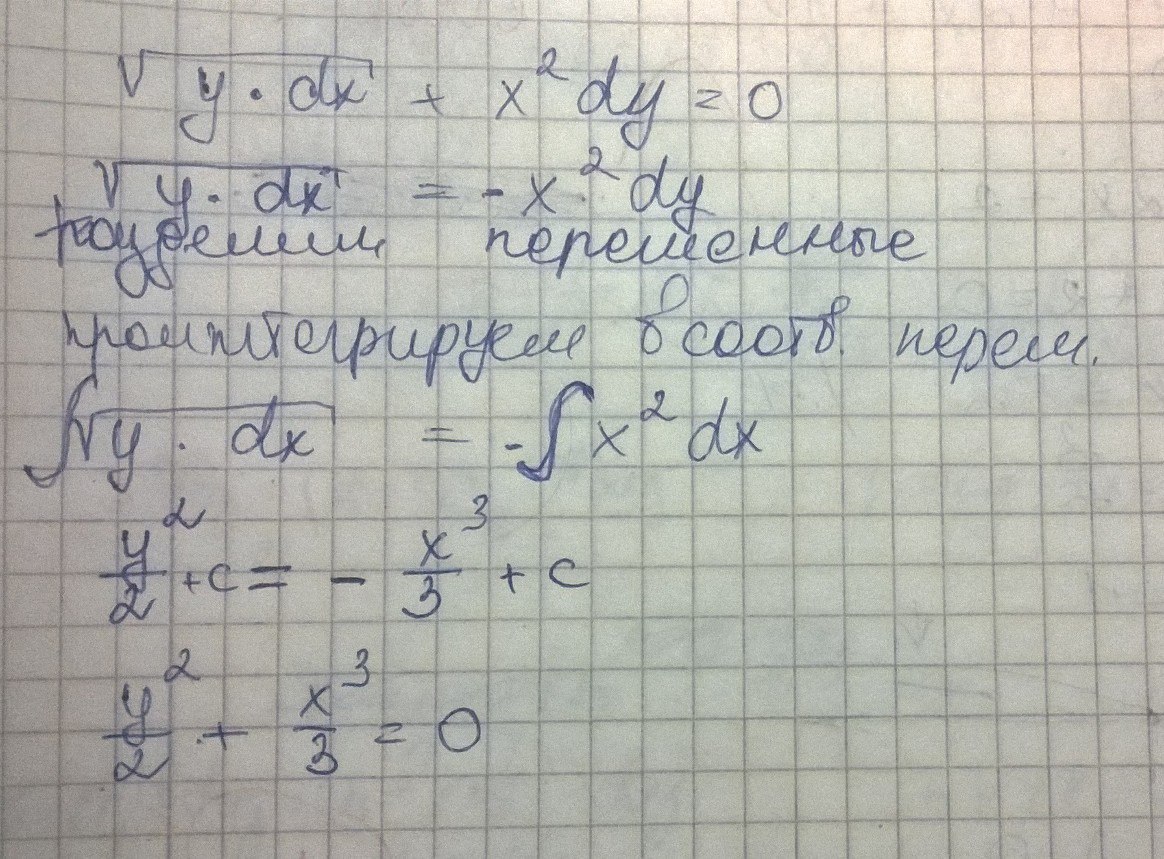 √y · dx + x² dy = 0
√y · dx = - x² dy
разделим переменные
проинтегрируем в соотв. перем.
∫√y · dx = - ∫ x² dx
y²/2 + c = - x³/3 + c
y²/2 + x³/3 = 0